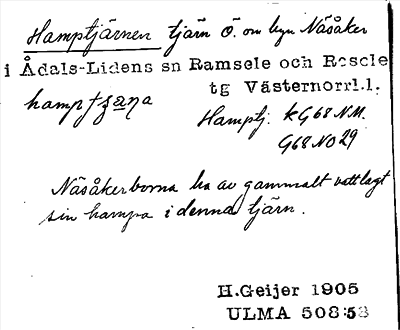 Hamptjärnen tjärn Ö. om byn Näsåker
i Ådals-Lidens sn Ramsele och Resele
tg Västernorrl.l.
Hamptj. kG68NM.
G68NO29
Näsåkerborna ha av gammalt vattlagt
sin hampa i denna tjärn.
H.Geijer 1905
ULMA 508:53